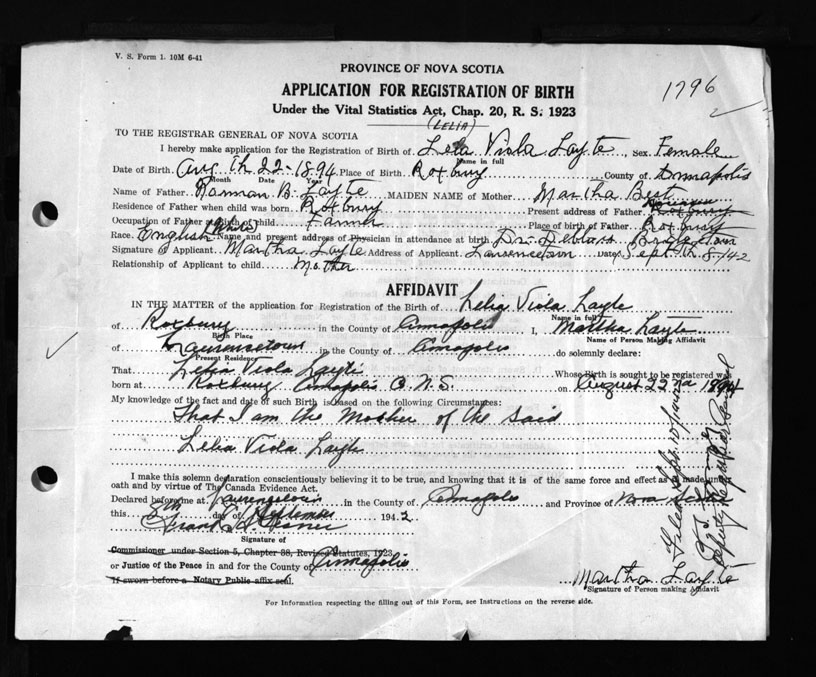 V. S. Form 1. 10M 6-41
PROVINCE OF NOVA SCOTIA
APPLICATION FOR REGISTRATION OF BIRTH
1796
Under the Vital Statistics Act, Chap. 20, R. S. 1923
(LELIA)
TO THE REGISTRAR GENERAL OF NOVA SCOTIA
I hereby make application for the Registration of Birth of Lela Viola Layte, Sex Female
Name in full
Date of Birth Aug th 22-1894 Place of Birth Roxbury County of Annapolis
Month Date Year
Name of Father B. Layte MAIDEN NAME of Mother Martha Best
Residence of Father when child was born Roxbury Present address of Father Roxbury
Occupation of Father at Birth of child Farmer Place of birth of Father Roxbury
Race English (White) Name and present address of Physician in attendance at birth Dr. Bridgetown
Signature of Applicant Martha Layte Address of Applicant Lawrencetown Date Sept th 8/42
Relationship of Applicant to child Mother
AFFIDAVIT
IN THE MATTER of the application for Registration of the Birth of Lelia Viola Layte
Name in full
of Roxbury in the County of Annapolis I, Martha Layte
Birth Place Name of Person Making Affidavit
of Lawrencetown in the County of Annapolis do solemnly declare:
Present Residence
That Lelia Viola Layte Whose Birth is sought to be registered was
born at Roxbury Annapolis Co. N.S. on August 22nd 1894
My knowledge of the fact and date of such Birth is based on the following Circumstances:
That I am the Mother of the said
Lelia Viola Layte
I make this solemn declaration conscientiously believing it to be true, and knowing that it is of the same force and effect as if made under
oath and by virtue of The Canada Evidence Act.
Declared before me at Lawrencetown in the County of Annapolis and Province of Nova Scotia
this 8th day of September 1942
Frank H.
Signature of
Commissioner under Section 5, Chapter 38, Revised Statutes, 1923
or Justice of the Peace in and for the County of Annapolis
If sworn before a Notary Public affix seal.
Martha Layte
Signature of Person making Affidavit
For Information respecting the filling out of this Form, see Instructions on the reverse side.
Filed Sept. 10
Deputy Registrar General